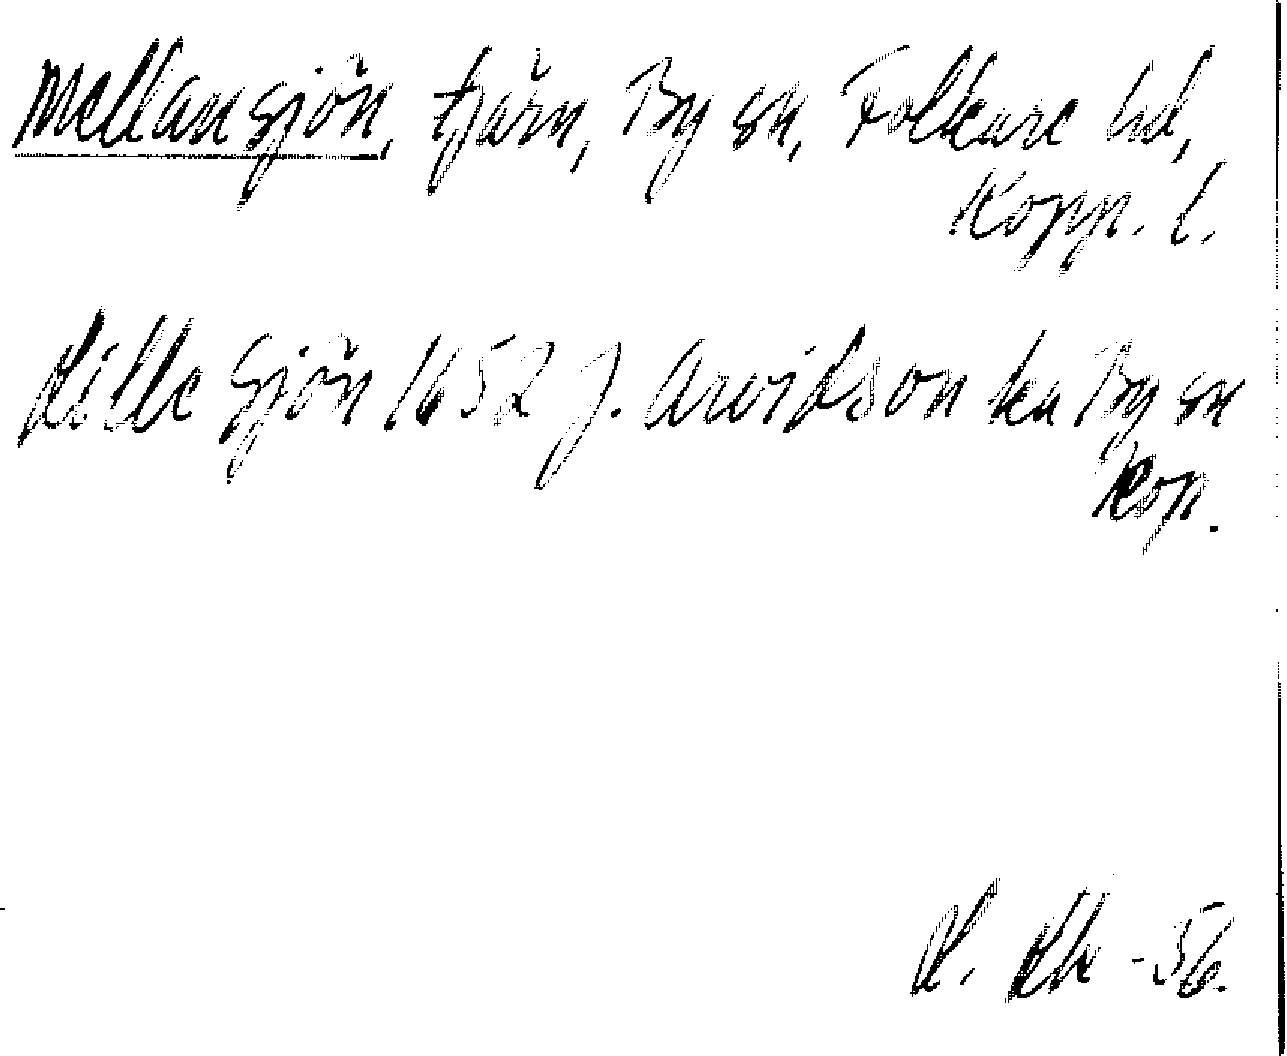 Mellansjön, tjärn, By sn, Folkare hd,
Kopp. l.
Lille Sjön 1652 J. Arvidson ka By sn
Kop.
-56.